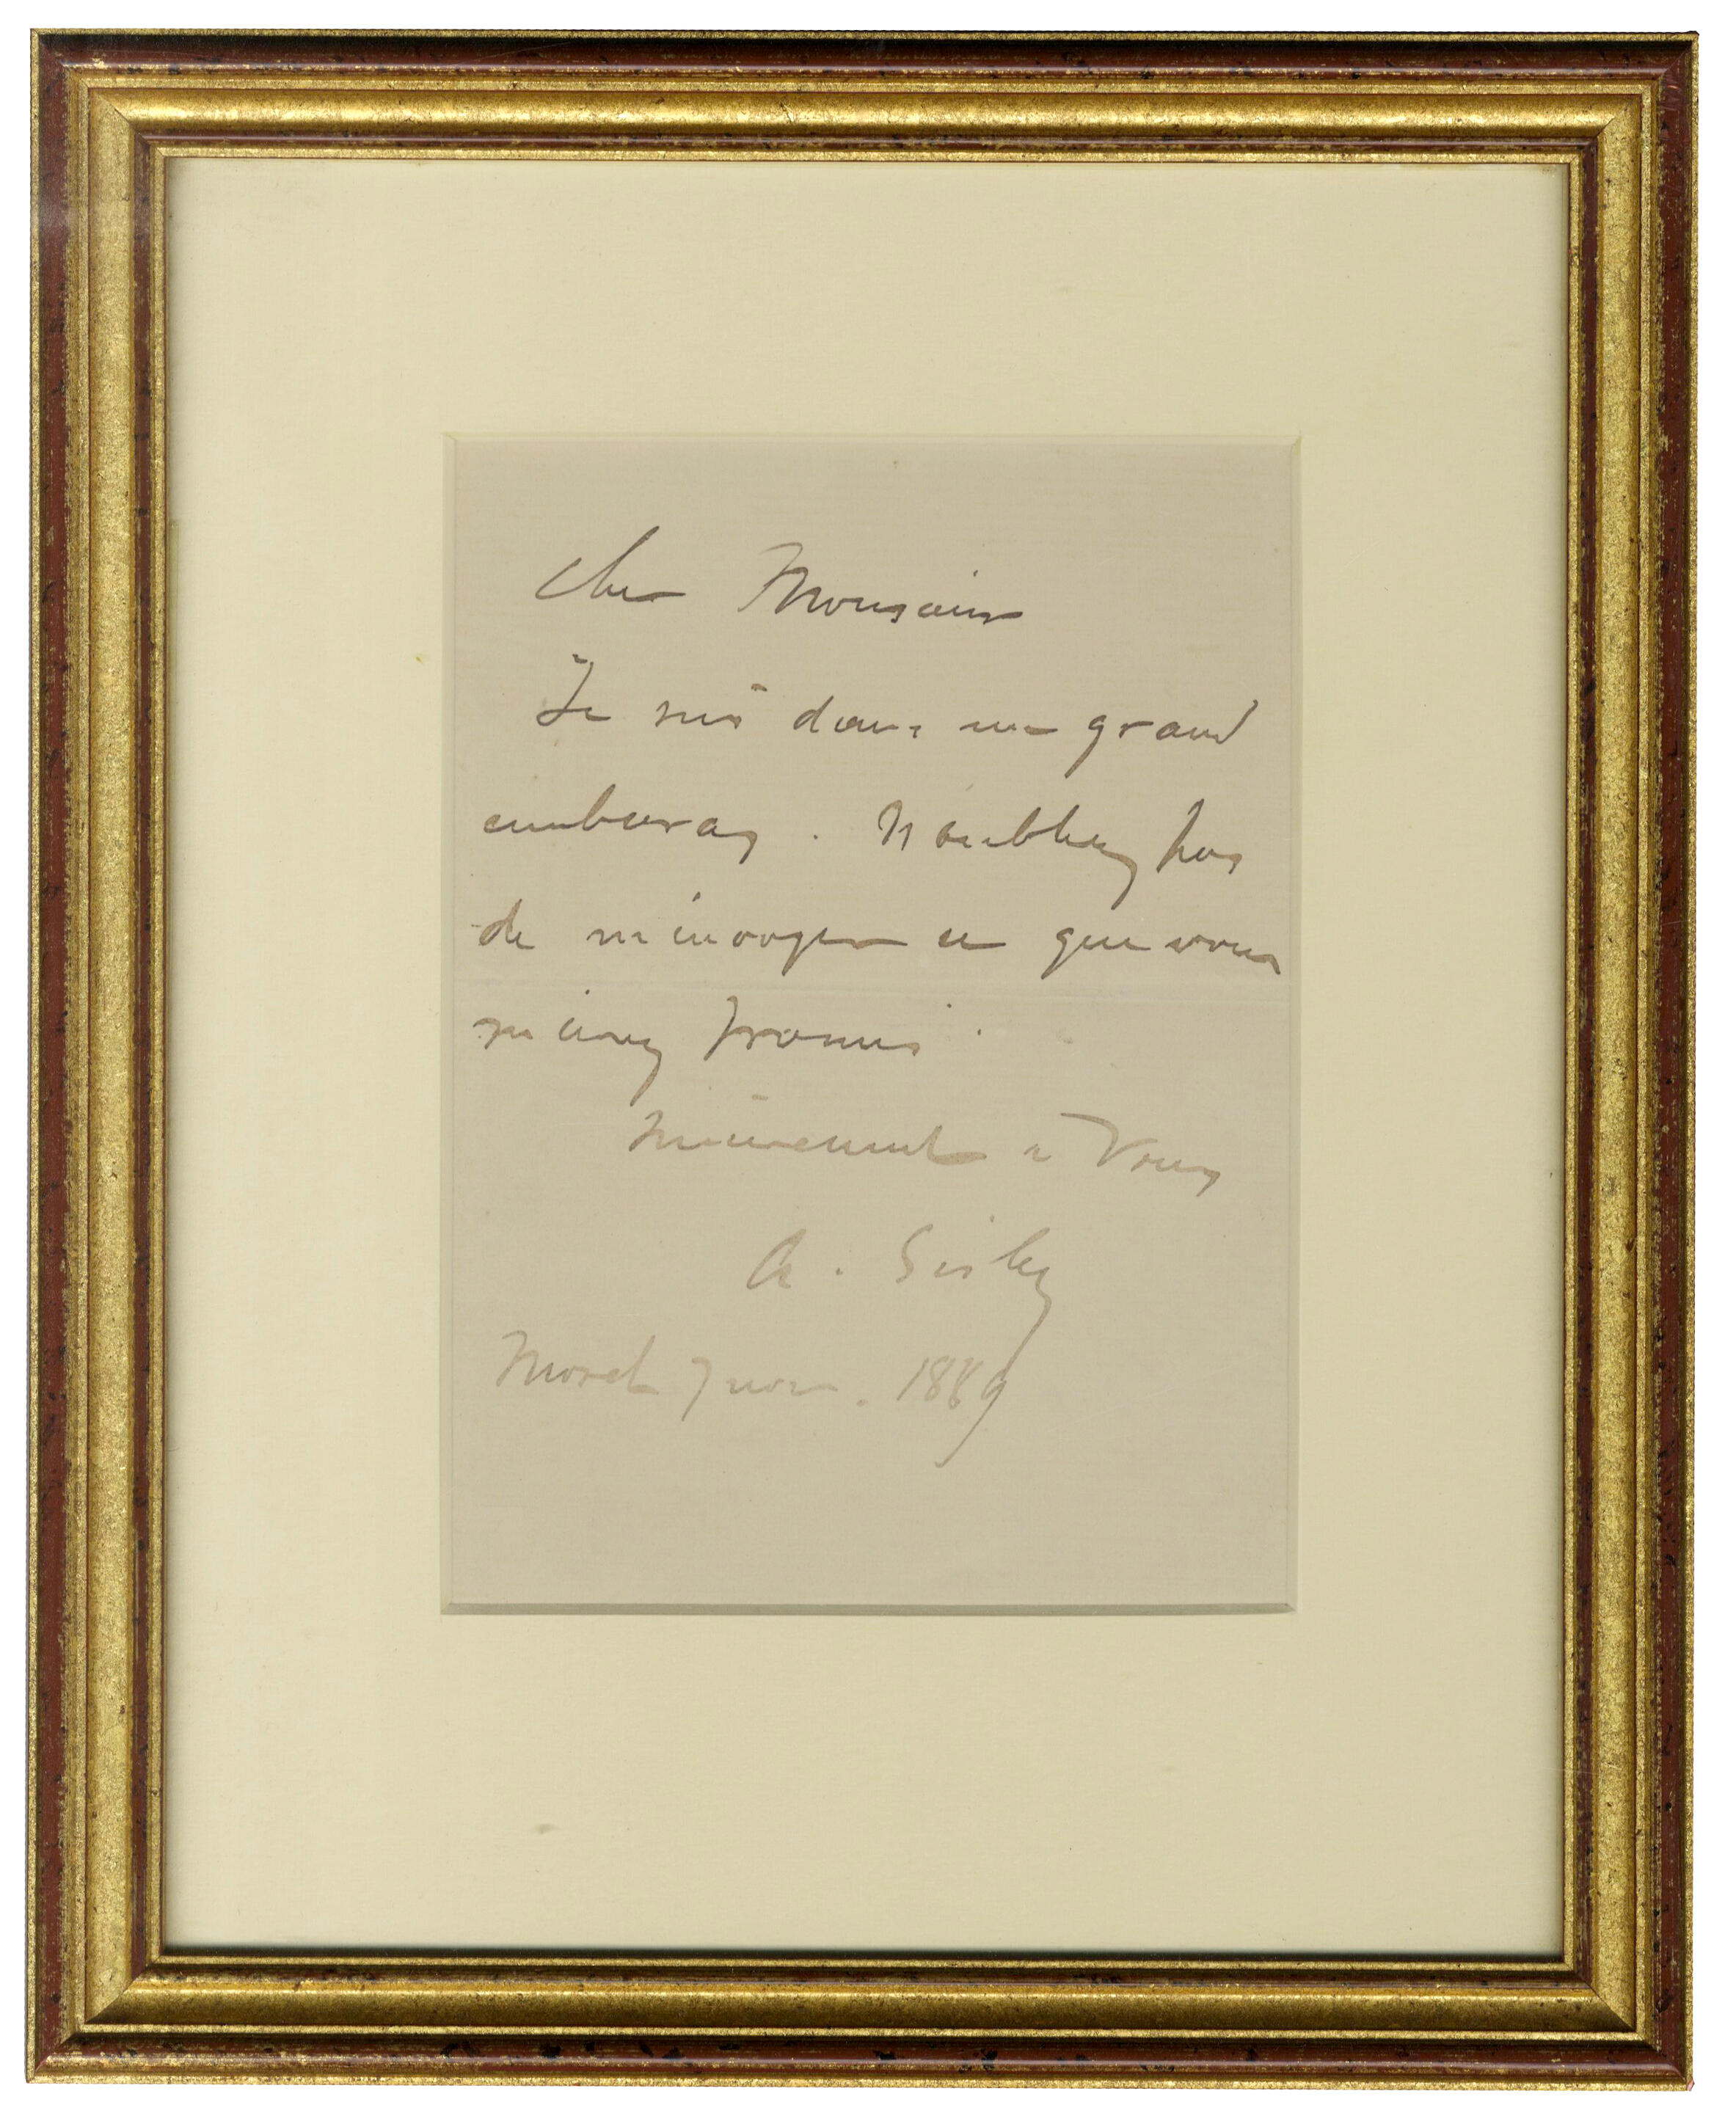 Cher Monsieur
Je suis dans un grand
embarras. N'oubliez pas
de m'envoyer ce que vous
m'avez promis.
à vous
A. Sisley
Moret 7 nov. 1889